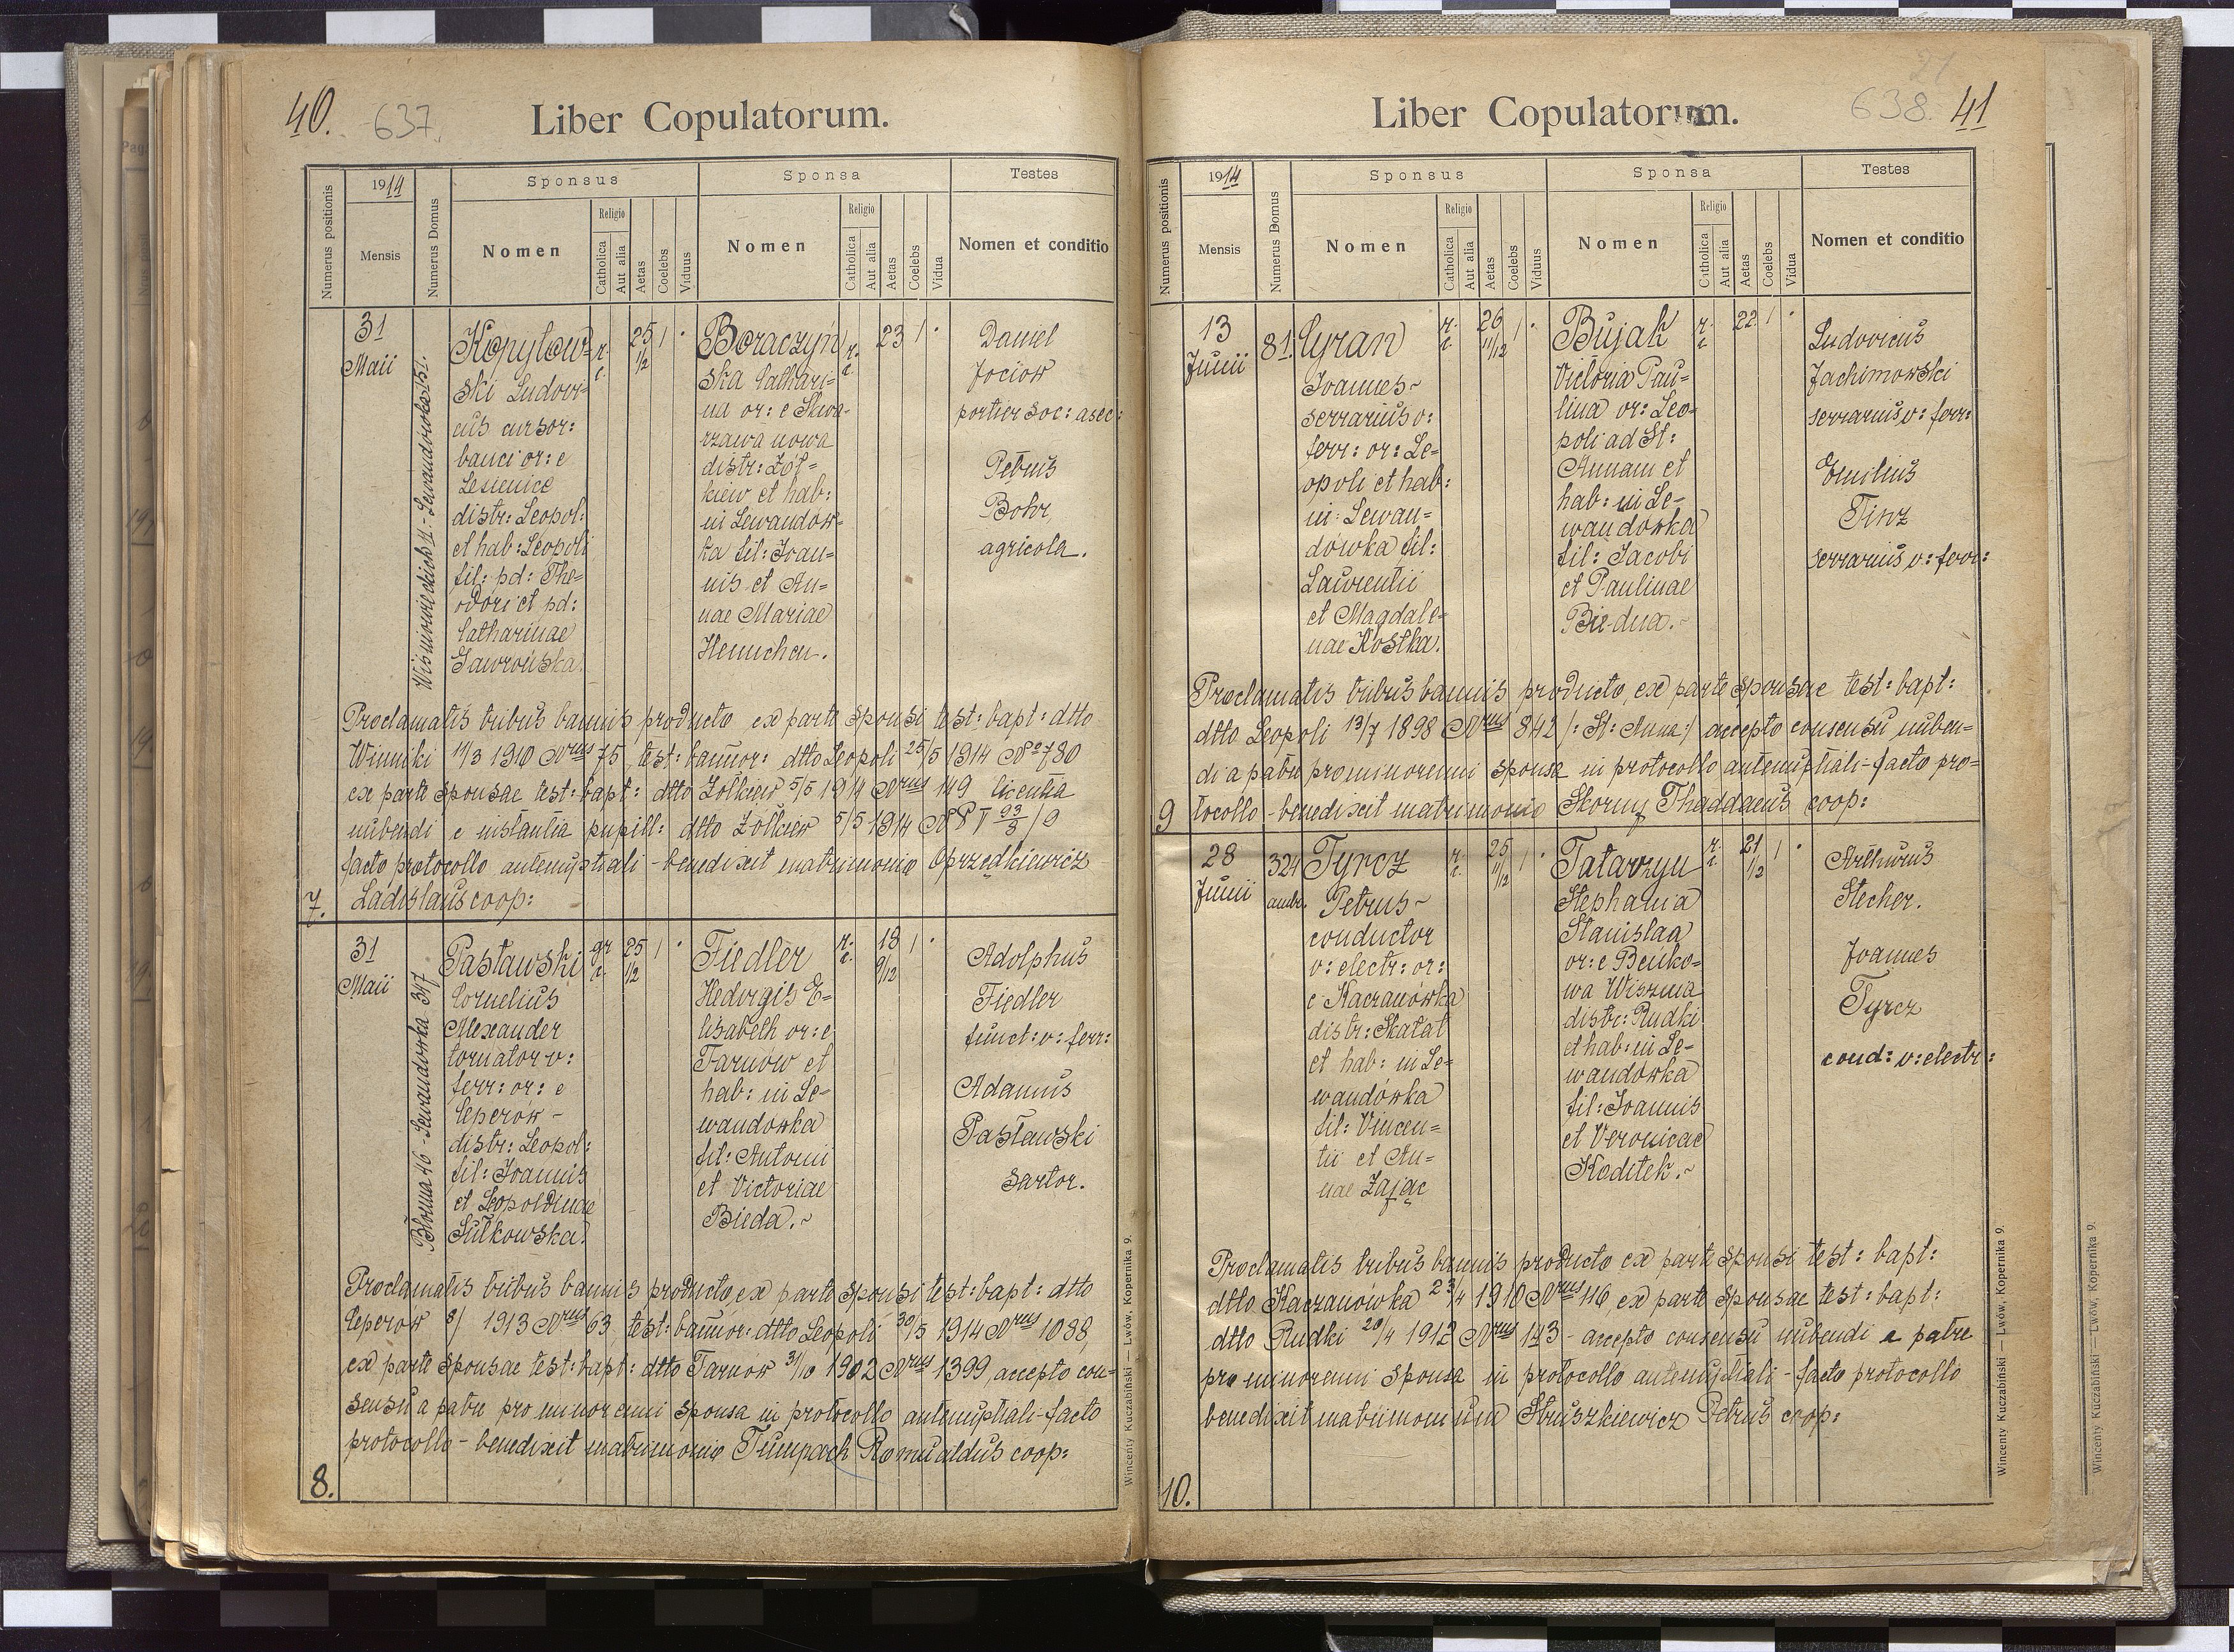 40.
637.
Liber Copulatorum.
Numerus positionis
1914
Mensis
Numerus Domus
Sponsus
Nomen
Religio
Catholica
Aut alia
Aetas
Coelebs
Viduus
Sponsa
Nomen
Religio
Catholica
Aut alia
Aetas
Coelebs
Vidua
Testes
Nomen et conditio
31
Maii
Wiśniowieckich 11.- Lewandówka 151.
Kopylow-
ski Ludovi-
cus cursor:
banci or: e
Lesienice
distr: Leopol:
et hab: Leopoli
fil: pd: The-
odori et pd:
Catharinae
Gawrońska.
r.
c.
25
1/2
1
Boraczyń
ska Cathari-
na or: e Skwa-
rzawa nowa
distr: Żół-
kiew et hab:
in Lewandów-
ka fil: Joan-
nis et An-
nae Mariae
Hennchen.
r.
c.
23
1
Daniel
Jociow
portier soc: asec:
Petrus
Bohr
agricola.
Proclamatis tribus bannis producto ex parte sponsi test: bapt: dtto
Winniki 11/3 1910 Nrus 75 test: bannor: dtto Leopoli 25/5 1914 No 780
ex parte sponsae test: bapt: dtto Żółkiew 5/5 1914 Nrus 149 licentia
nubendi e instantia pupill: dtto Żółkiew 5/5 1914 P I 93/8 / 9
facto protocollo antenuptiali - benedixit matrimonio Oprzędkiewicz
7. Ladislaus coop:
31
Maii
Błonia 46 - Lewandówka 347
Pasławski
Cornelius
Alexander
tornator v:
ferr: or: e
Ceperów -
distr: Leopol:
fil: Joannis
et Leopoldinae
Sulkowska.
gr
c.
25
1/2
1
Fiedler
Hedvigis E-
lisabeth or: e
Tarnow et
hab: in Le-
wandówka
fil: Antonii
et Victoriae
Bieda.~
r.
c.
18
9/12
1
Adolphus
Fiedler
funct: v: ferr:
Adamus
Pasławski
sartor.
Proclamatis tribus bannis producto ex parte sponsi test: bapt: dtto
Ceperów 8/ 1913 Nrus 63 test: bannor: dtto Leopoli 30/5 1914 Nrus 1088
ex parte sponsae test: bapt: dtto Tarnów 31/10 1902 Nrus 1399, accepto con-
sensu a patre pro minorenni sponsa in protocollo antenuptiali-facto
protocollo - benedixit matrimonio Tumpach Romualdus coop:
8.
Wincenty Kuczabiński — Lwów, Kopernika 9.
21
638.
41
Liber Copulatorum.
Numerus positionis
1914
Mensis
Numerus Domus
Sponsus
Nomen
Religio
Catholica
Aut alia
Aetas
Coelebs
Viduus
Sponsa
Nomen
Religio
Catholica
Aut alia
Aetas
Coelebs
Vidua
Testes
Nomen et conditio
13
Junii
81.
Cyran
Joannes~
serrarius v:
ferr: or: Le-
opoli et hab:
in Lewan-
dówka fil:
Laurentii
et Magdale-
nae Kostka.
r.
c
26
11/12
1
Bujak
Victoria Pau-
lina or: Leo-
poli ad St:
Annam et
hab: in Le-
wandówka
fil: Jacobi
et Paulinae
Biedna.-
r.
c
22
1
Ludovicus
Jachimowski
serrarius v: ferr:
Emilius
Tinz
serrarius v: ferr:
Proclamatis tribus bannis producto, ex parte sponsae test: bapt:
dtto Leopoli 13/7 1898 Nrus 842 /: St: Anna :/ accepto consensu nuben-
di a patre pro minorenni sponsa in protocollo antenuptiali-facto pro-
9 tocollo - benedixit matrimonio Skorny Thaddaeus coop:
28
Junii
324
amb.
Tyrcz
Petrus~
conductor
v: electr: or:
e Kaczanówka
distr: Skałat
et hab: in Le-
wandówka
fil: Vincen-
tii et An-
nae Zając
r.
c.
25
11/12
1
Tatarzyn
Stephania
Stanislaa
or: e Beńko-
wa Wisznia
distr: Rudki
et hab: in Le-
wandówka
fil: Joannis
et Veronicae
Koditek.~
r.
c.
21
1/2
1
Arthurus
Stecher.
Joannes
Tyrcz
cond: v: electr:
Proclamatis tribus bannis producto ex parte sponsi test: bapt:
dtto Kaczanówka 23/4 1910 Nrus 116, ex parte sponsae test: bapt:
dtto Rudki 20/4 1912 Nrus 143 - accepto consensu nubendi a patre
pro minorenni sponsa in protocollo antenuptiali - facto protocollo
benedixit matrimonium Struszkiewicz Petrus coop:
10.
Wincenty Kuczabiński — Lwów, Kopernika 9.
Wincenty Kuczabiński — Lwów, Kopernika 9.